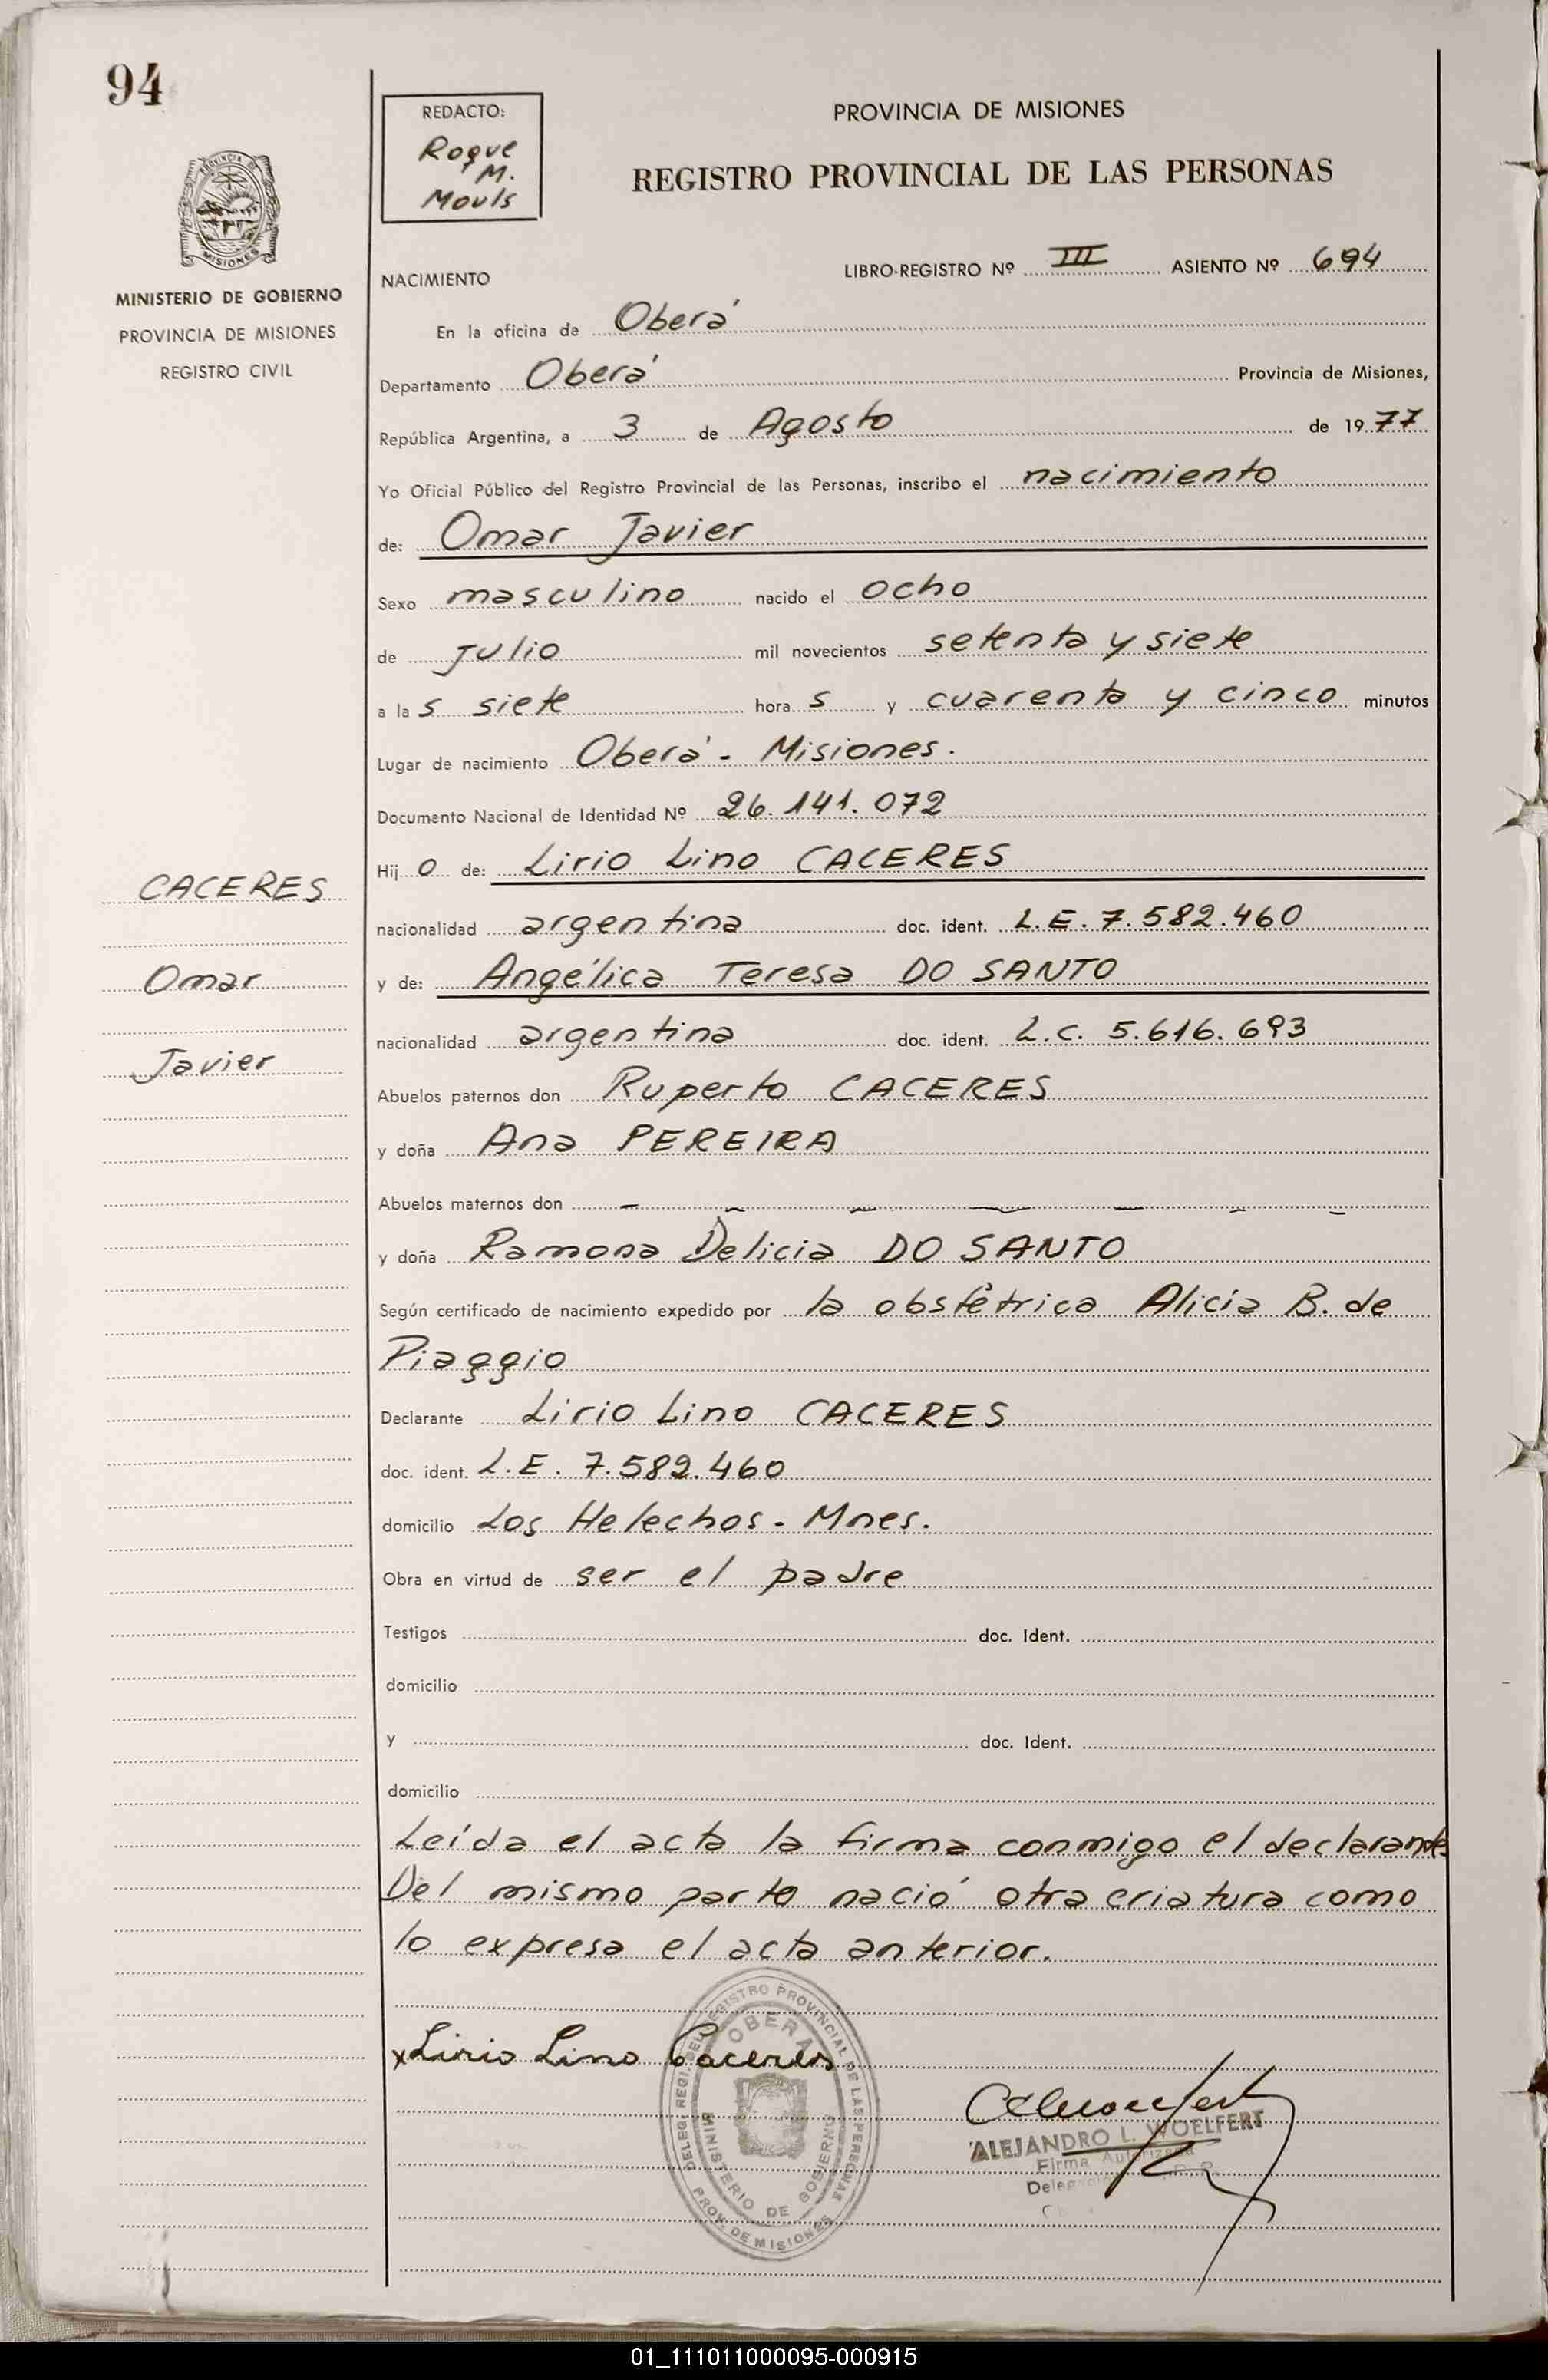 94
REDACTO:
Roque
M.
Mouls
PROVINCIA DE MISIONES
REGISTRO PROVINCIAL DE LAS PERSONAS
PROVINCIA DE
MISIONES
MINISTERIO DE GOBIERNO
PROVINCIA DE MISIONES
REGISTRO CIVIL
LIBRO-REGISTRO Nº III ASIENTO Nº 694
NACIMIENTO
En la oficina de Oberá
Departamento Oberá Provincia de Misiones,
República Argentina, a 3 de Agosto de 1977
Yo Oficial Público del Registro Provincial de las Personas, inscribo el nacimiento
de: Omar Javier
Sexo masculino nacido el ocho
de Julio mil novecientos setenta y siete
a las siete horas y cuarenta y cinco minutos
Lugar de nacimiento Oberá - Misiones.
Documento Nacional de Identidad Nº 26.141.072
Hijo de: Lirio Lino CACERES
nacionalidad argentina doc. ident. L.E. 7.582.460
y de: Angélica Teresa DO SANTO
nacionalidad argentina doc. ident. L.C. 5.616.693
Abuelos paternos don Ruperto CACERES
y doña Ana PEREIRA
Abuelos maternos don - - - - - - -
y doña Ramona Delicia DO SANTO
Según certificado de nacimiento expedido por la obstétrica Alicia B. de
Piaggio
Declarante Lirio Lino CACERES
doc. ident. L.E. 7.582.460
domicilio Los Helechos - Mnes.
Obra en virtud de ser el padre
Testigos doc. Ident.
domicilio
y doc. Ident.
domicilio
Leída el acta la firma conmigo el declarante
Del mismo parto nació otra criatura como
lo expresa el acta anterior.
CACERES
Omar
Javier
x Lirio Lino Caceres
DELEG. REGIS. DEL REGISTRO PROVINCIAL DE LAS PERSONAS
OBERA
MINISTERIO DE GOBIERNO
PROV. DE MISIONES
ALEJANDRO L. WOELFERT
Firma Autorizada
01_111011000095-000915